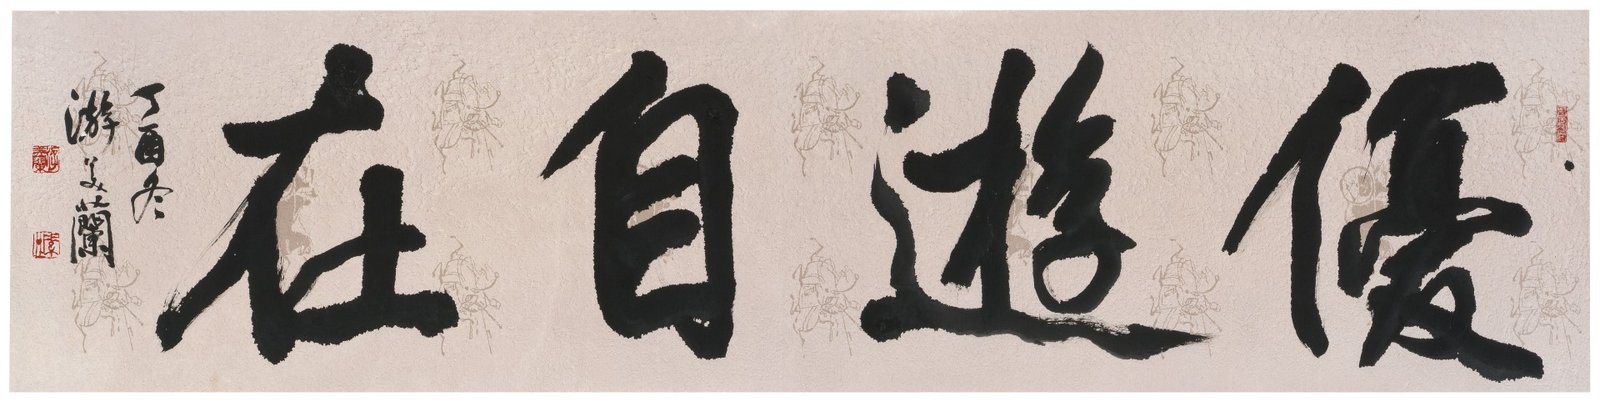 優遊自在
丁酉冬
游美蘭